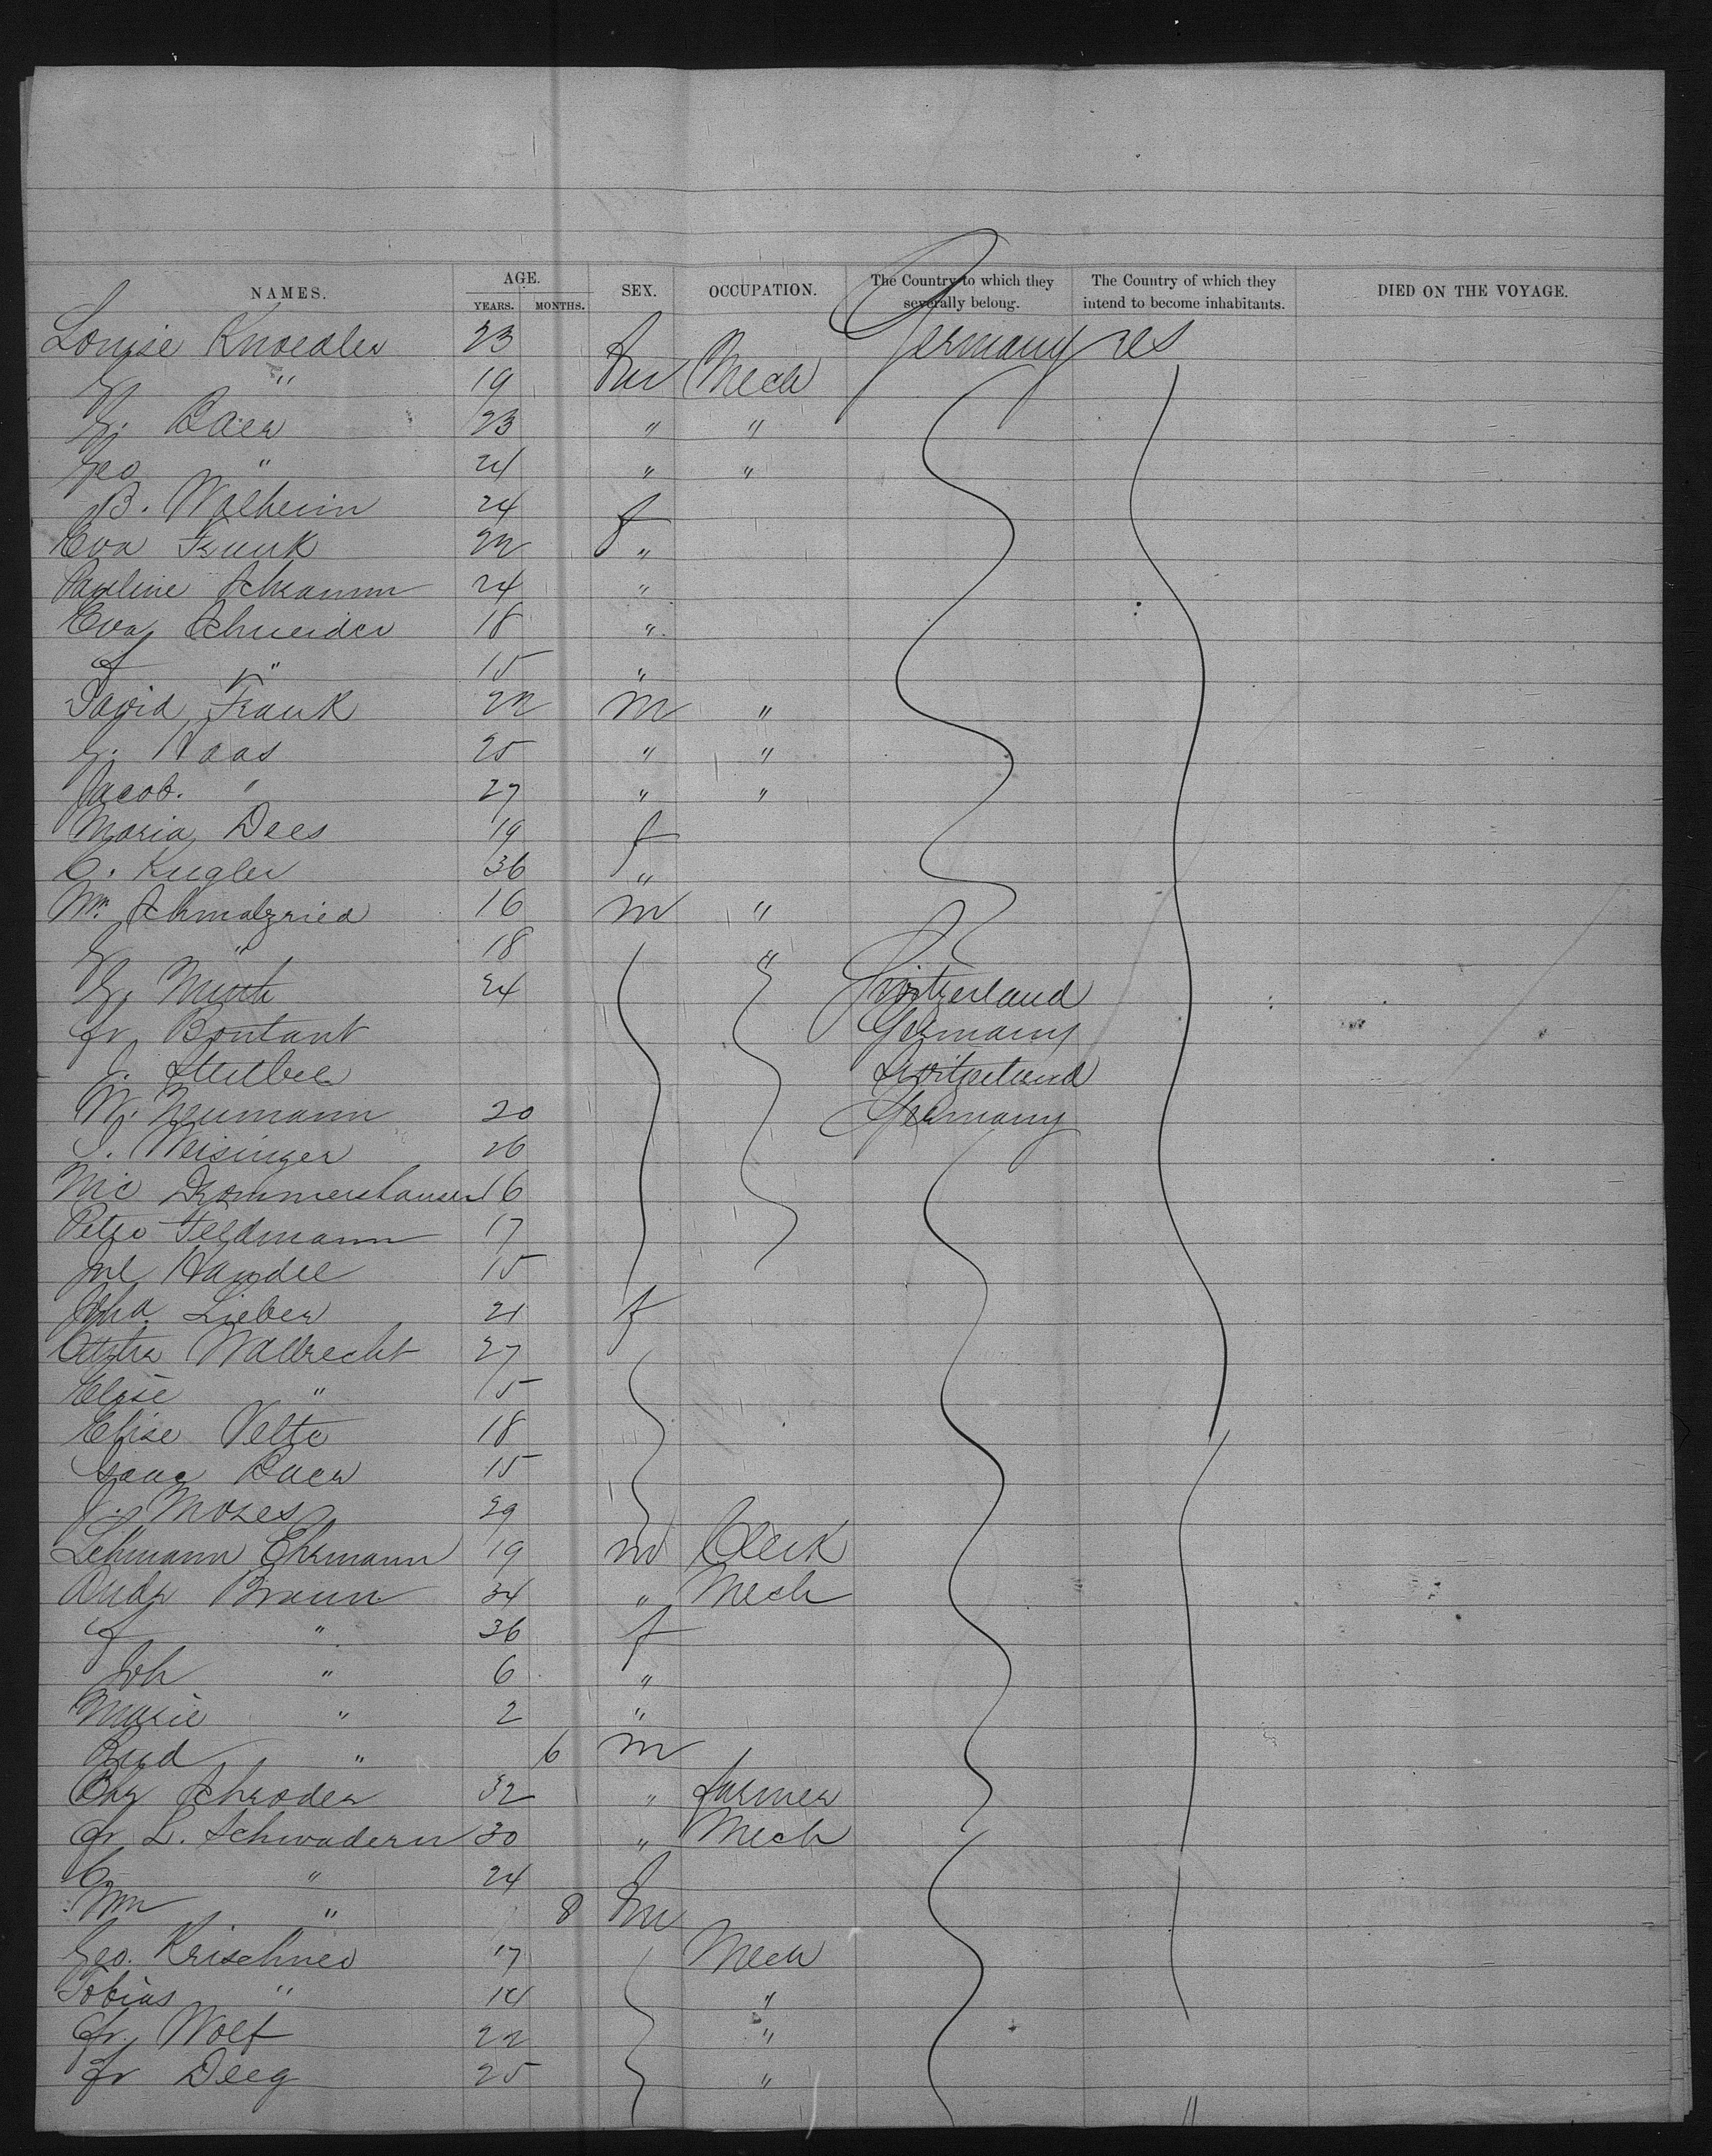 NAMES. AGE. YEARS. MONTHS. SEX. OCCUPATION. The Country to which they severally belong. The Country of which they intend to become inhabitants. DIED ON THE VOYAGE.
Louise Knoedler 23 f Germany US
G. " 19 m Mech
G. Baer 23 " "
Geo " 24 " "
B. Walheim 24 f
Eva Frank 22 "
Pauline Schramm 24 "
Eva Schneider 18 "
f " 15 "
David Frank 22 m "
G. Haas 25 " "
Jacob. " 27 " "
Maria Dees 19 f
C. Kugler 36 "
Wm. Schmalzried 16 m "
G. " 18 "
G. Muth 24 Switzerland
Fr Bontant Germany
J. Switzerland
W. Neumann 20 Germany
J. Weisinger 26
Nic Drommershausen 16
Peter Feldmann 17
Jul Handel 15
Joha. Lieber 21 f
Wallrecht 27
Elise " 15
Elise Velte 18
Isaac Baer 15
J. Moses 29
Lehmann Ehrmann 19 m Clerk
Andr Braun 34 " Mech
f " 36 f
Joh " 6 "
Marie " 2 "
Rud " 6 m
Chr Schroder 32 " farmer
Fr L. Schwadern 30 " Mech
C. " 24 f
Wm " 8 m
Geo. Krischner 17 Mech
Tobias " 14 "
Fr. Wolf 22 "
Fr Deeg 25 " "